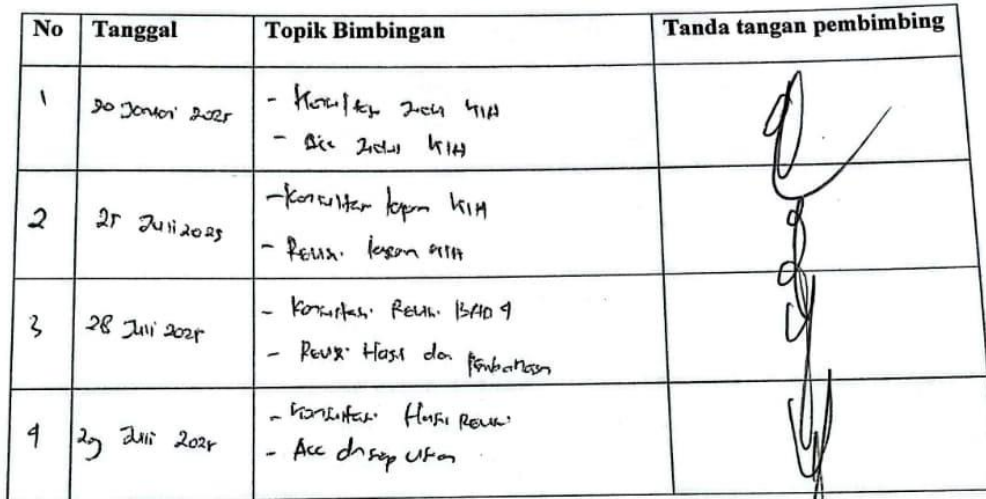 No Tanggal Topik Bimbingan Tanda tangan pembimbing
1 20 Januari 2025 - Konsultasi Judul KIA
- Acc Judul KIA
2 25 Juli 2025 - Konsultasi laporan KIA
- Revisi laporan KIA
3 28 Juli 2025 - Konsultasi Revisi BAB 4
- Revisi Hasil dan Pembahasan
4 29 Juli 2025 - Konsultasi Hasil Revisi
- Acc